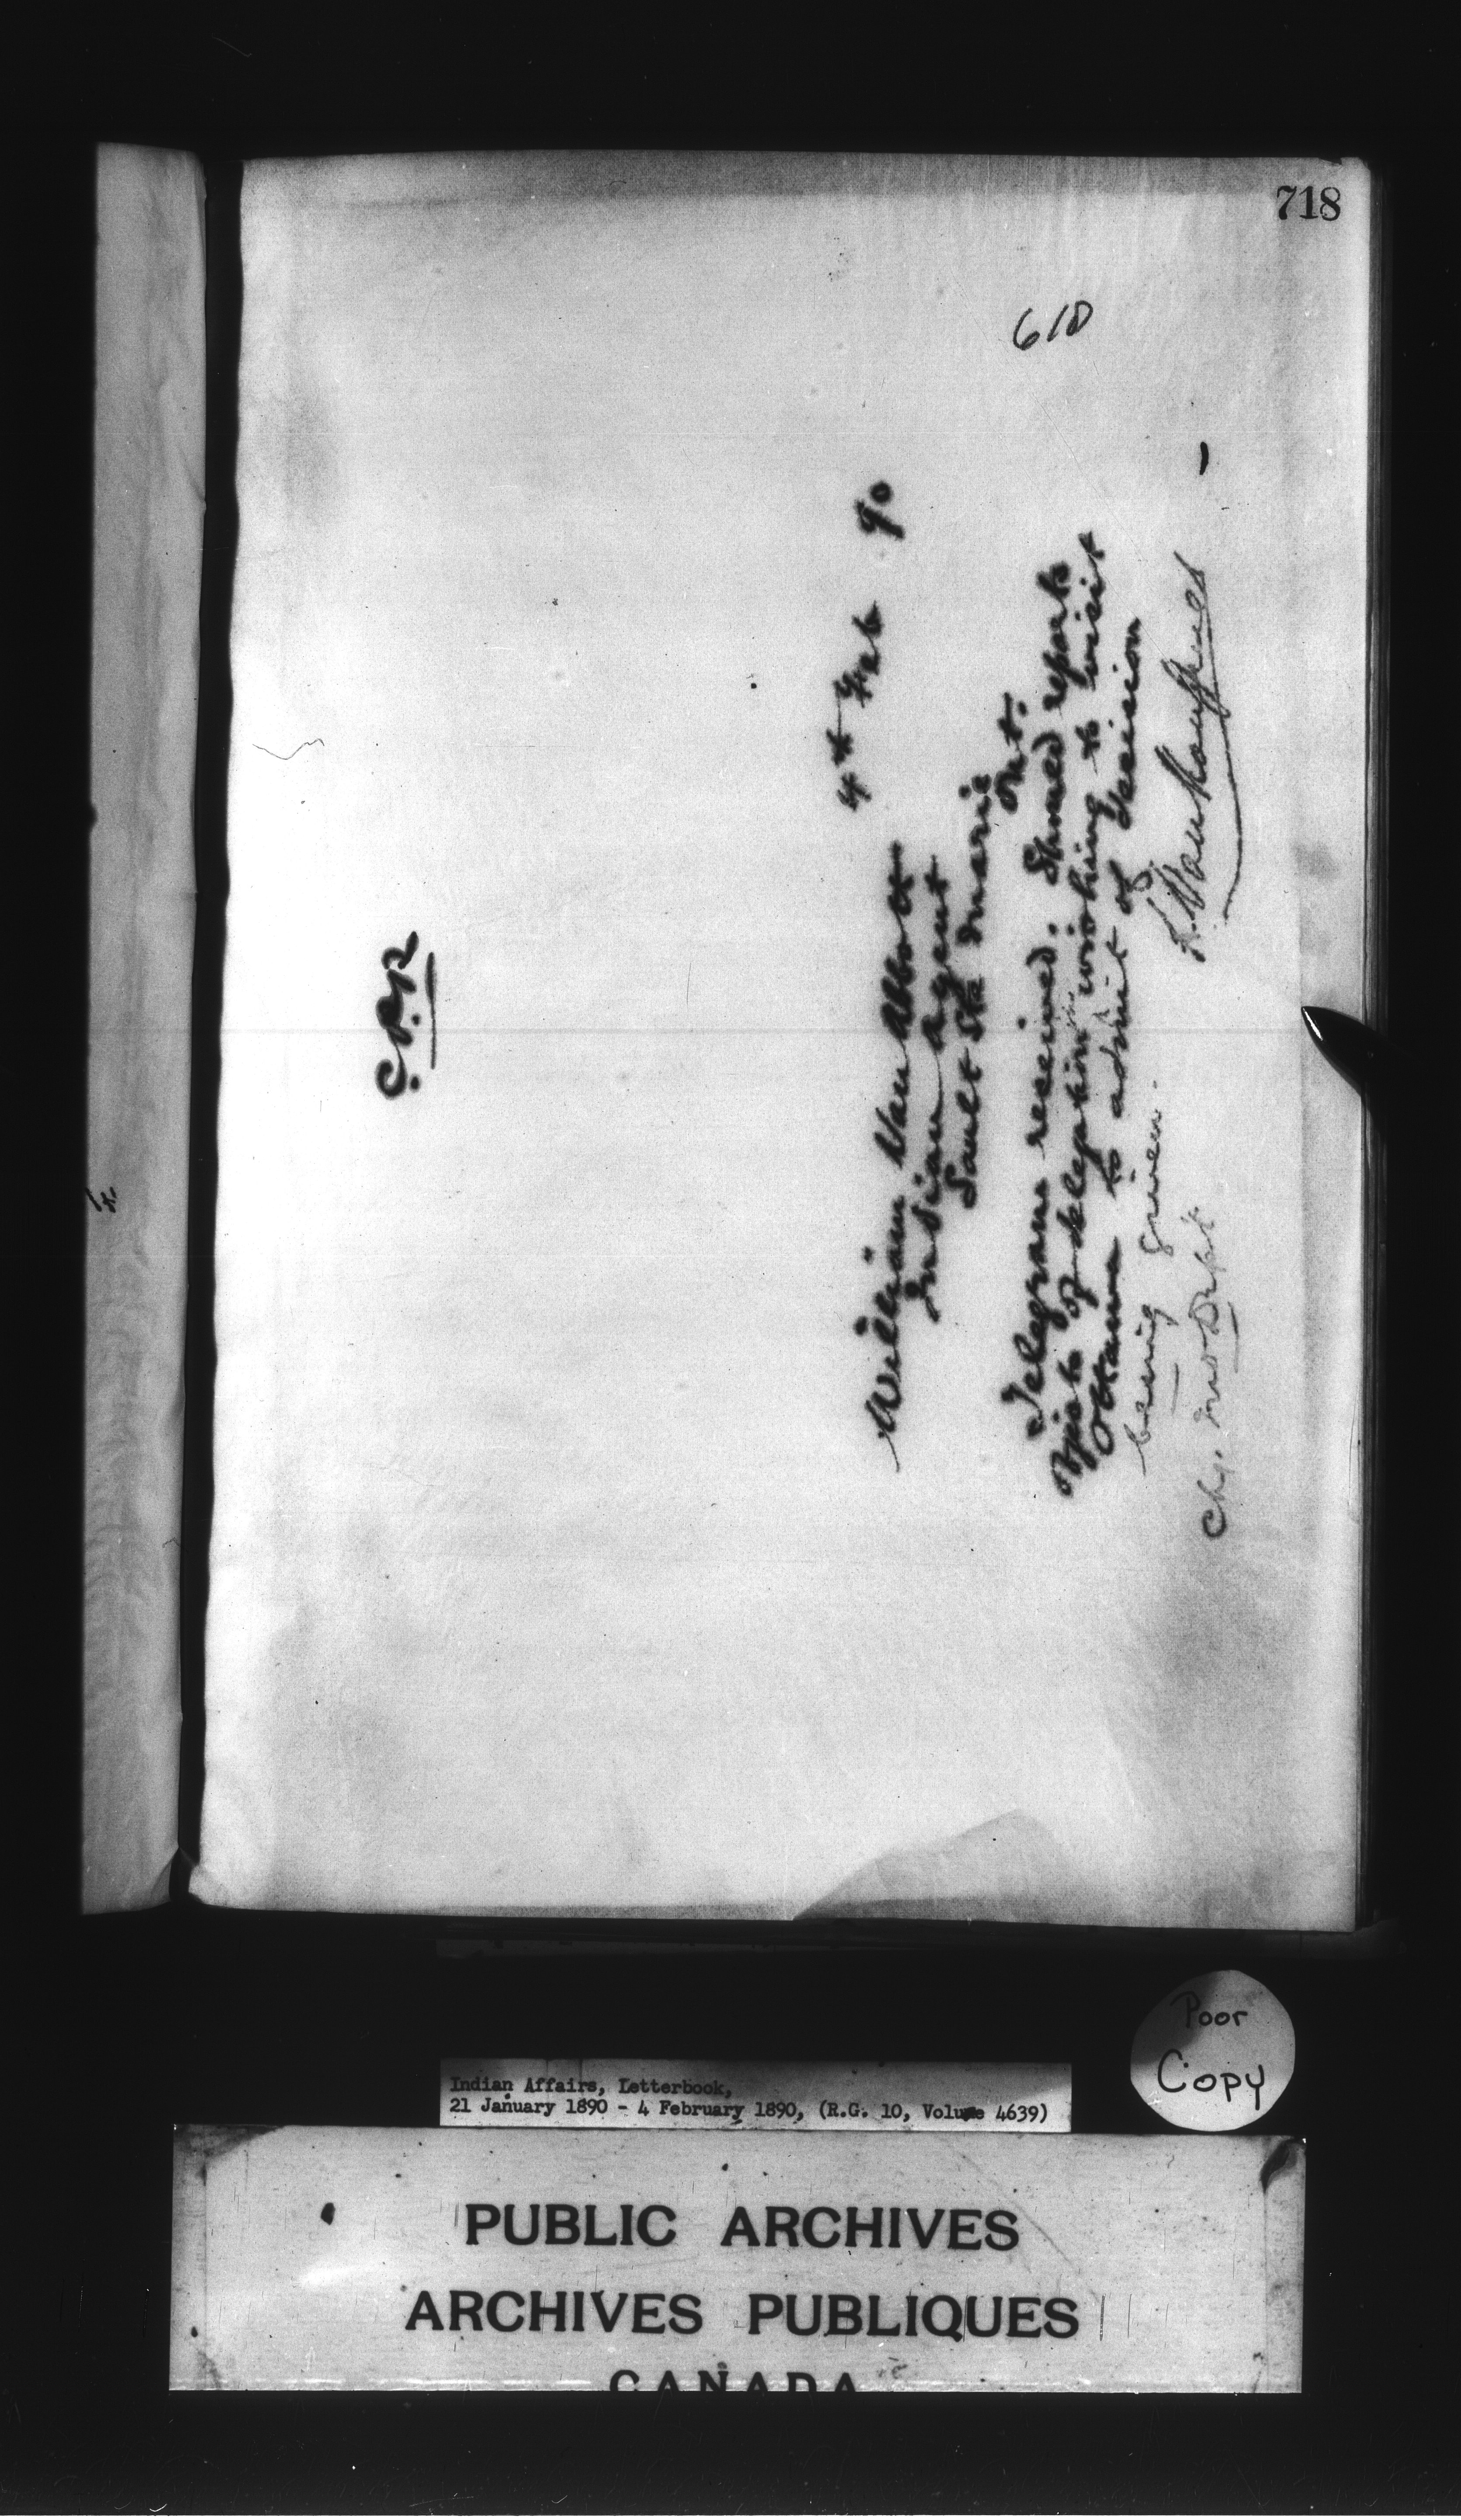 718
618
C.P.R
4th Feb 90
William Van Abbott
Indian Agent
Sault Ste Marie
Ont.
Telegram received. Should report
object of delegation in wishing to visit
Ottawa to admit of decision
being given.
L. Vankoughnet
Chg. Ind Dept
Poor
Copy
Indian Affairs, Letterbook,
21 January 1890 - 4 February 1890, (R.G. 10, Volume 4639)
PUBLIC ARCHIVES
ARCHIVES PUBLIQUES
CANADA